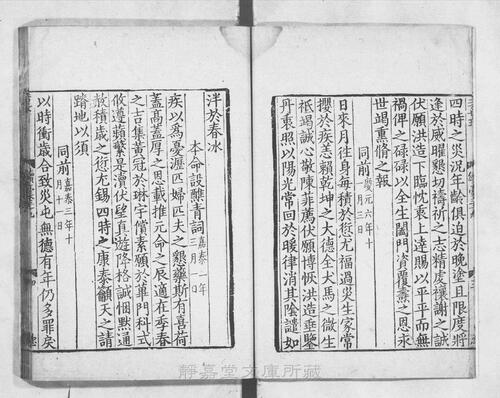 四時之災況年齡俱迫於晚塗且限度將
逢於威曜懇切禱祈之志精虔禳謝之誠
伏願洪造下臨忱衷上達賜以平平而無
禍俾之碌碌以全生闔門資覆燾之恩永
世竭熏脩之報
同前慶元六年十一月三日
日來月往身每積於愆尤福過災生家常
攖於疾恙賴乾坤之大德全犬馬之微生
祗竭誠心敬陳菲薦伏願博恢洪造垂鑒
丹衷照以陽光常回於暖律消其陰譴如
泮於春冰
本命設醮青詞嘉泰二年三月一日
疾以為憂涯匹婦匹夫之懇藥斯有喜荷
蓋高蓋厚之恩載推元命之辰適在季春
之吉集黃冠於琳宇償素願於蓽門科式
攸遵蘋蘩是瀆伏望真遊降格誠悃默通
赦積歲之愆尤錫四時之康泰籲天之請
蹐地以須
同前嘉泰三年十月十一日
以時衝歲合致災屯無德有年仍多罪戾
靜嘉堂文庫所藏